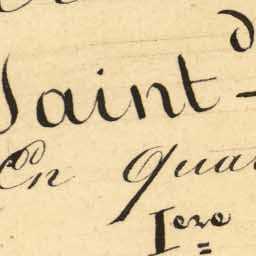 Saint-
En Qua
Iere